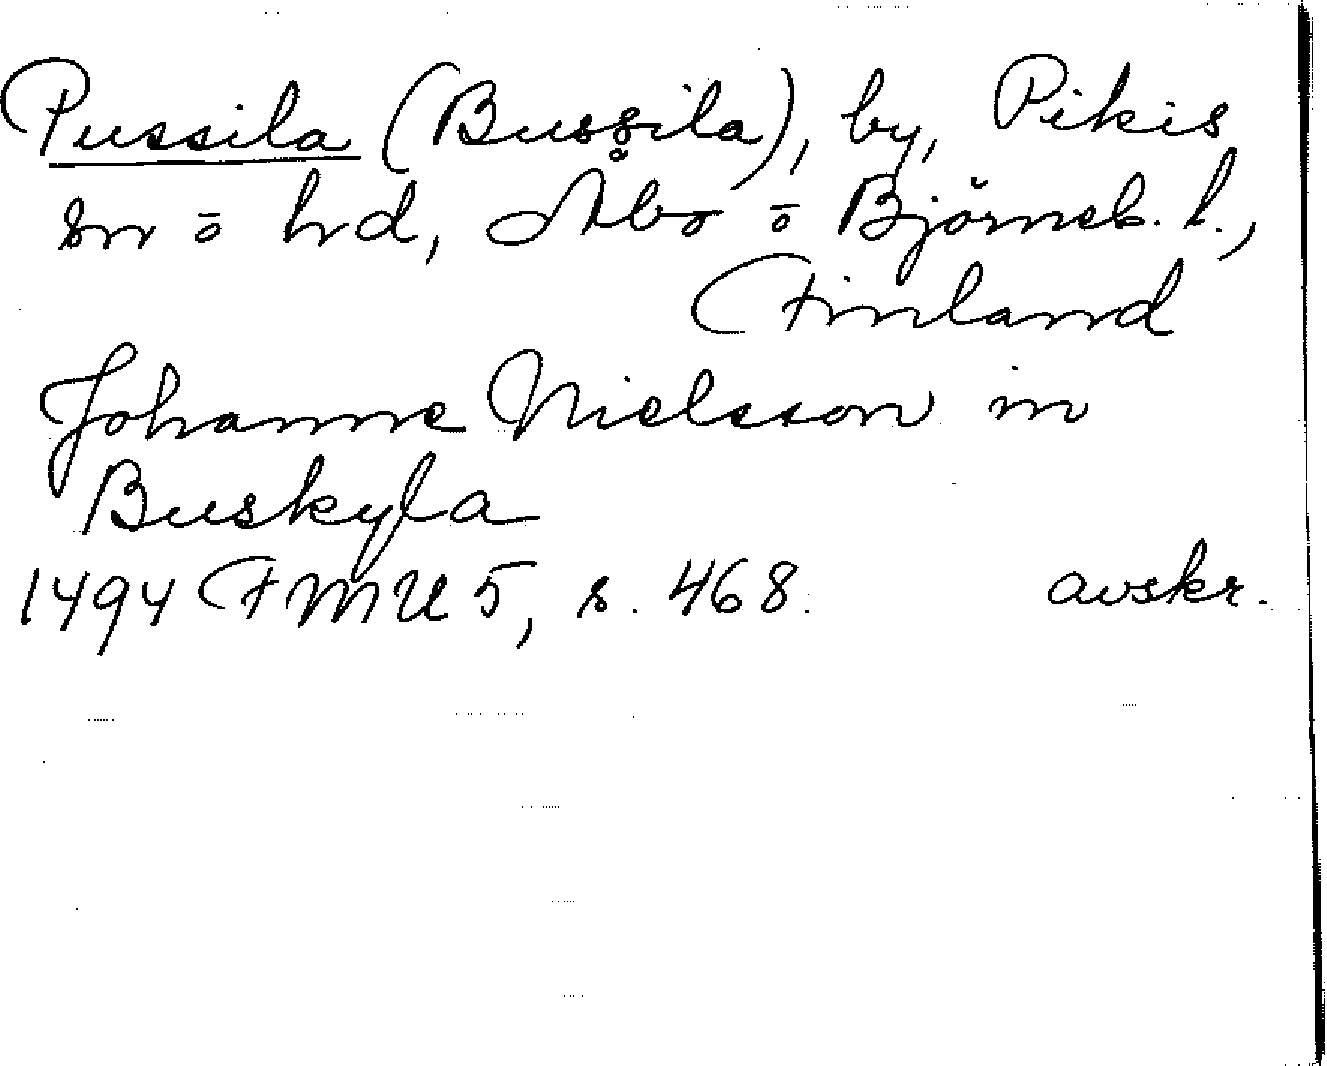 Pussila (Bussila), by, Pikis
sn o hd, Åbo o Björneb. l.,
Finland
Johanne Nielsson in
Buskyla
1494 FMU 5, s. 468. avskr.